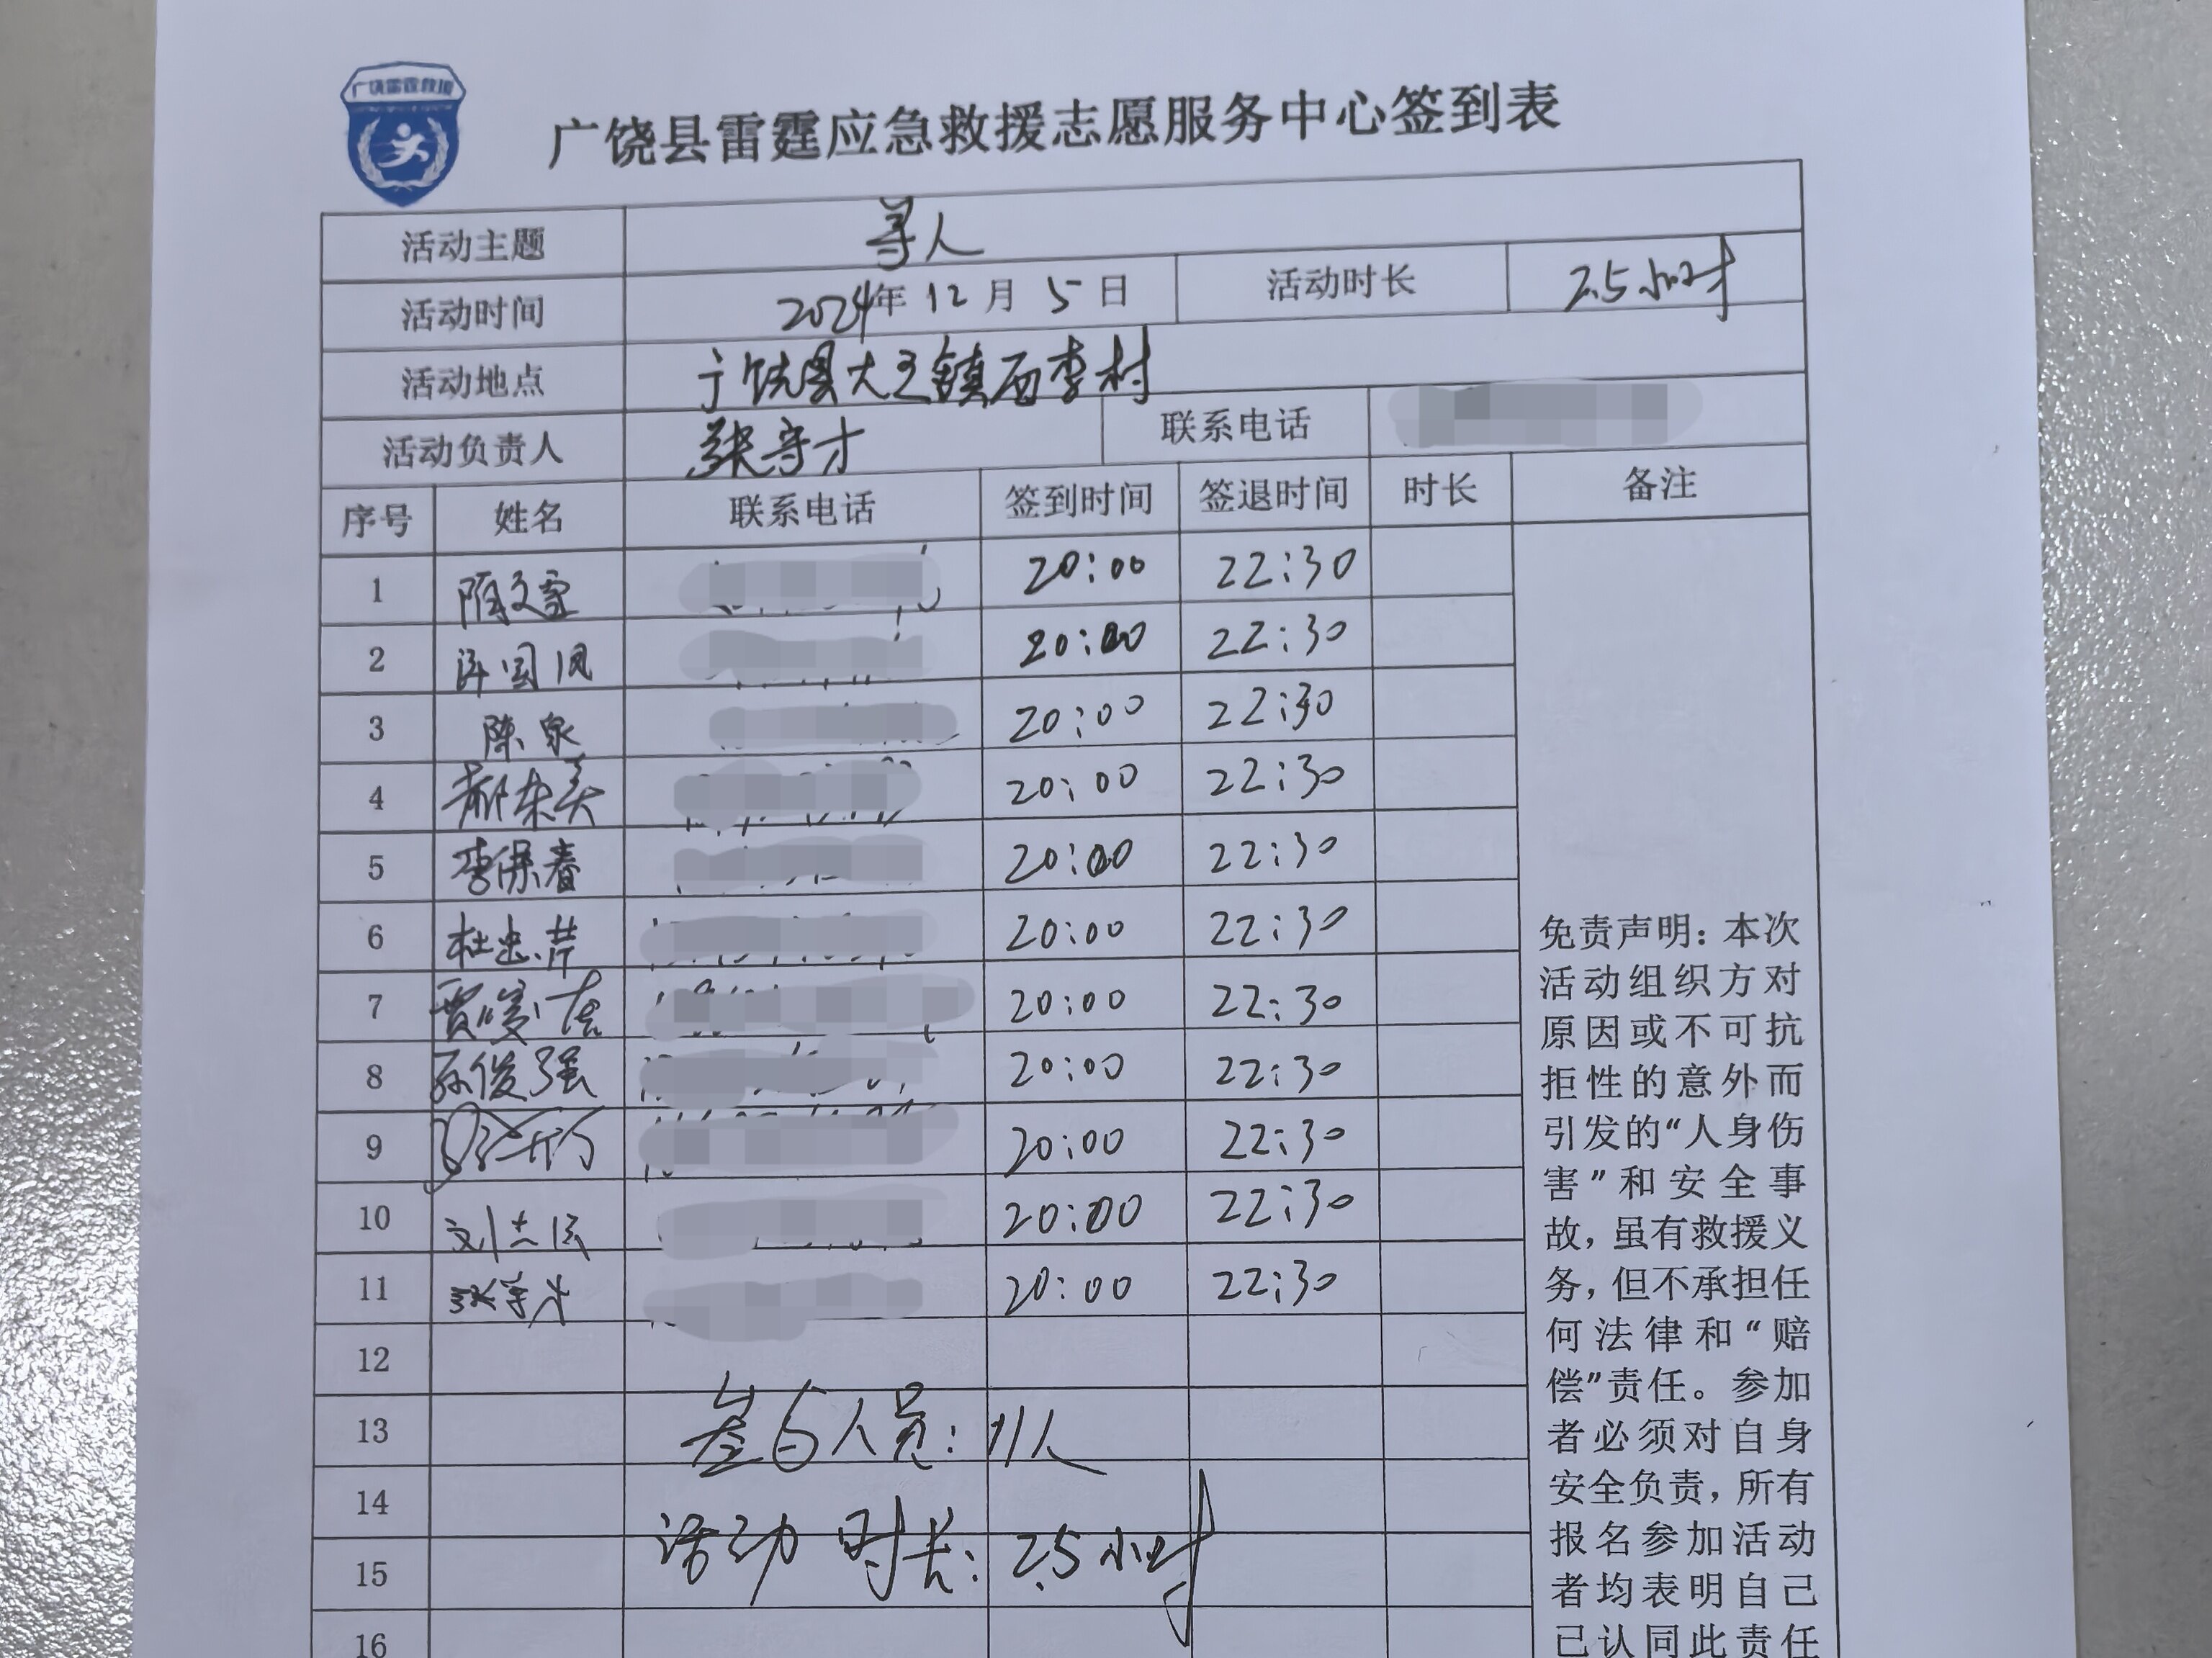 广饶雷霆救援
广饶县雷霆应急救援志愿服务中心签到表
活动主题 寻人
活动时间 2024年 12 月 5 日 活动时长 2.5小时
活动地点 广饶县大王镇西李村
活动负责人 张守才 联系电话
序号 姓名 联系电话 签到时间 签退时间 时长 备注
1 隋文 20:00 22:30
2 许国凤 20:00 22:30
3 陈泉 20:00 22:30
4 郝东美 20:00 22:30
5 李保春 20:00 22:30
6 杜忠芹 20:00 22:30
7 贾 20:00 22:30
8 孙俊强 20:00 22:30
9 20:00 22:30
10 刘 20:00 22:30
11 张 20:00 22:30
12
13 参与人员: 11人
14
15 活动时长: 2.5小时
16
免责声明：本次
活动组织方对
原因或不可抗
拒性的意外而
引发的“人身伤
害”和安全事
故，虽有救援义
务，但不承担任
何法律和“赔
偿”责任。参加
者必须对自身
安全负责，所有
报名参加活动
者均表明自己
已认同此责任